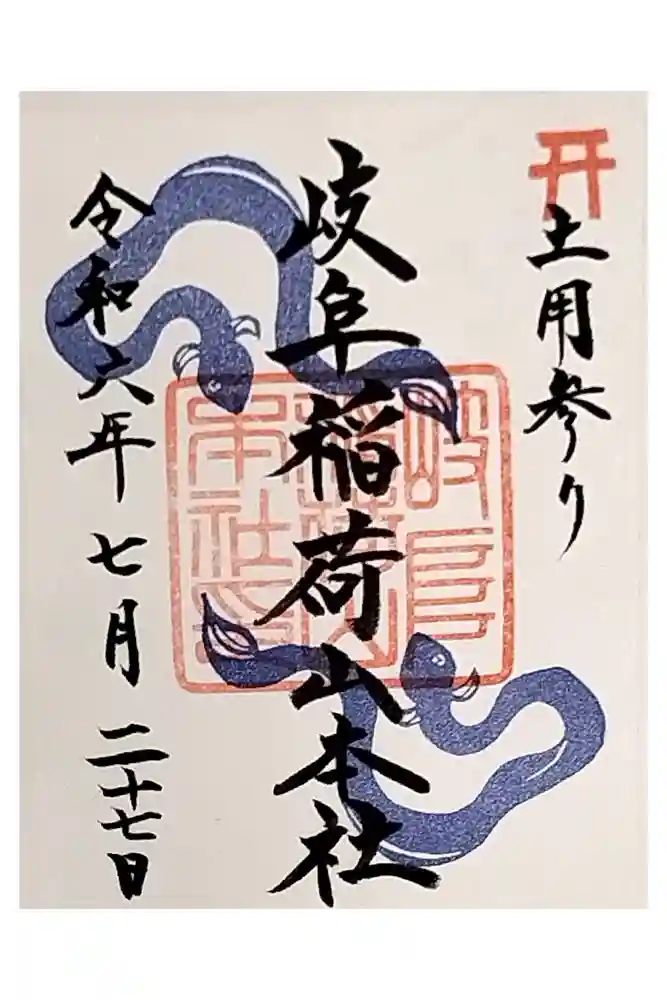 土用参り
岐阜稲荷山本社
令和六年七月二十七日
岐阜
稲荷山
本社印